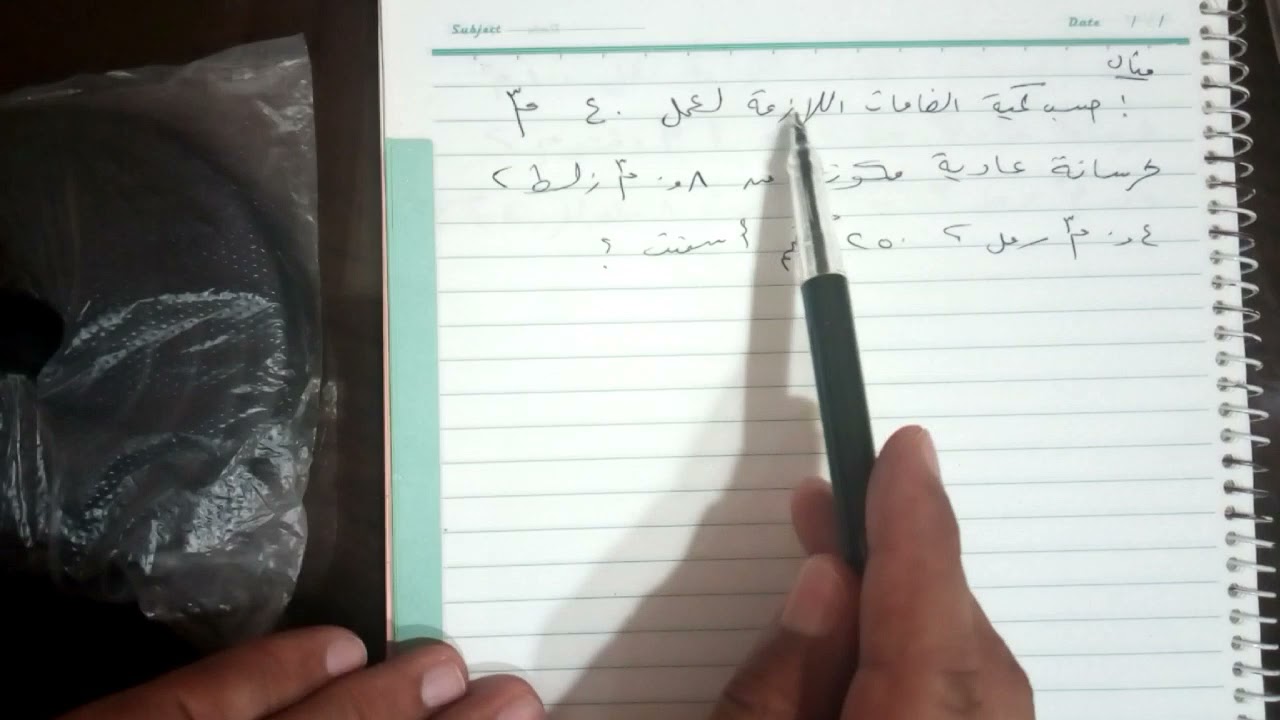 Subject Date / /
مثال
احسب كمية الخامات اللازمة لعمل ٤٠ م٣
خرسانة عادية مكونة من ٠,٨ م٣ زلط ،
٠,٤ م٣ رمل ، ٢٥٠ كجم أسمنت ؟